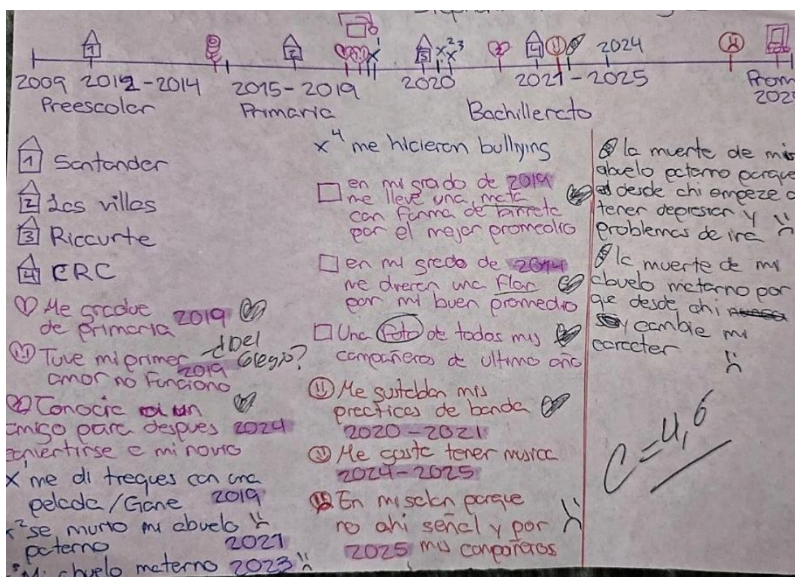 2024
2009 2012-2014 2015-2019 2020 2021-2025 Prom
Preescolar Primaria Bachillerato
1 Santander
2 Las villas
3 Ricaurte
4 CRC
1 Me gradue
de primaria 2019
Tuve mi primer ¿Del
amor no funciono 2019 Colegio?
2 Conocia a un
amigo para despues 2024
convertirse e mi novio
x me di treques con una
pelada/Gane 2019
x² se murio mi abuelo
paterno 2021
Mi abuelo materno 2023
x⁴ me hicieron bullying
en mi grado de 2019
me lleve una meta
con forma de birrete
por el mejor promedio
en mi grado de 2014
me dieron una flor
por mi buen promedio
Una foto de todos mis
compañeros de ultimo año
Me gustaban mis
practicas de banda
2020-2021
Me gusta tener musica
2024-2025
En mi salon porque
no ahi señal y por
2025 mis compañeros
la muerte de mi
abuelo paterno porque
desde ahi empeze a
tener depresion y
problemas de ira
la muerte de mi
abuelo materno por
que desde ahi
y cambie mi
caracter
C=4,6